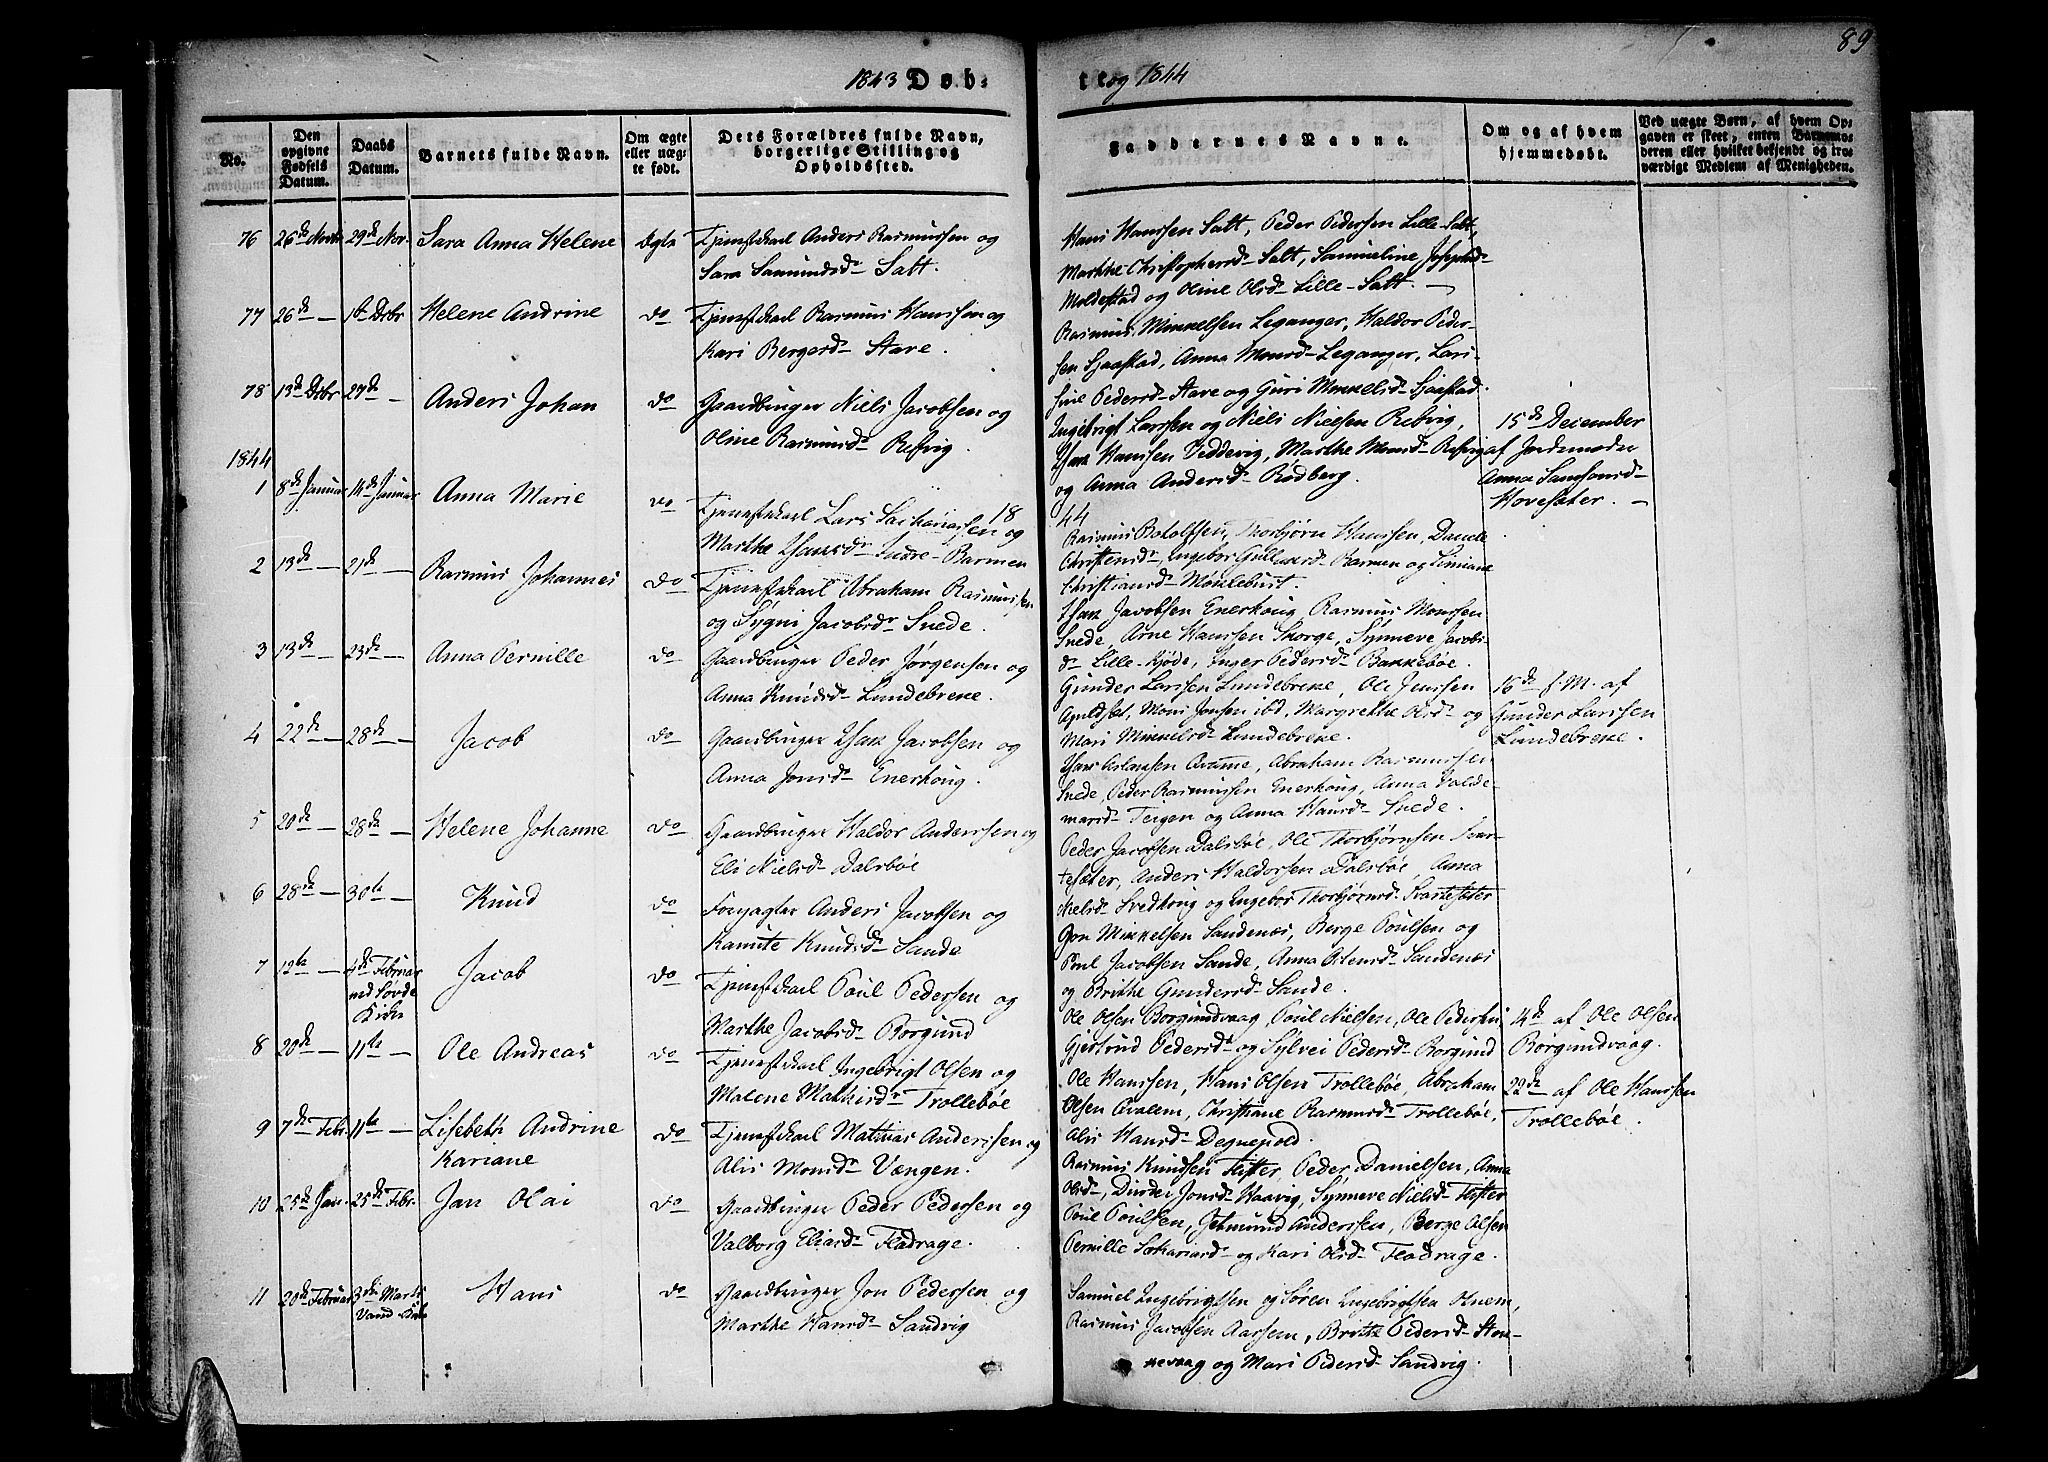 89
1843 Døb-
te og 1844
No.
Den opgivne Fødsels Datum.
Daabs Datum.
Barnets fulde Navn.
Om ægte eller uægte født.
Dets Forældres fulde Navn, borgerlige Stilling og Opholdssted.
Faddernes Navne.
Om og af hvem hjemmedøbt.
Ved uægte Børn, af hvem Opgaven er skeet, enten Barnemoderen eller hvilket bekjendt og troværdigt Medlem af Menigheden.
76 26de Novbr 29de Nov. Sara Anna Helene Ægte Tjenestkarl Anders Rasmussen og
Sara Samundsdr Salt.
Hans Hanssen Salt, Peder Pedersen Lille-Salt,
Marthe Christophersdr Salt, Samueline Josephsdr
Moldestad og Oline Olsdr Lille-Salt. —
77 26de — 1ste Decbr Helene Andrine do Tjenestkarl Rasmus Hanssen og
Kari Bergersdr Stave.
Rasmus Mikkelsen Leganger, Haldor Peder-
sen Sjaastad, Anna Monsdr Leganger, Lari-
sine Pedersdr Stave og Guri Mikkelsdr Sjaastad.
78 13de Decbr 27de — Anders Johan do Gaardbruger Niels Jacobsen og
Oline Rasmusdr Refvig.
Ingebrigt Larssen og Niels Nielsen Refvig,
Isak Hanssen Veddevig, Marthe Monsdr Refvig
og Anna Andersdr Rødberg.
15de December
af Jordemoder
Anna Samsonsdr
Hovesæter. —
1844
1 8de Januar 14de Januar Anna Marie do Tjenestkarl Lars Sachariassen og
Marthe Isaksdr Indre-Barmen
18
44
Rasmus Botolfsen, Thorbjørn Hanssen, Danele
Christensdr, Ingebor Gullaksdr Barmen og Siniane
Christiansdr Møkleburst.
2 13de — 21de — Rasmus Johannes do Tjenestkarl Abraham Rasmussen
og Sygni Jacobsdr Snede.
Isak Jacobsen Enerhoug, Rasmus Monssen
Snede, Arne Hanssen Skorge, Synneve Jacobs-
dr Lille-Hjøde, Inger Pedersdr Bakkebøe.
3 13de — 23de — Anna Pernille do Gaardbruger Peder Jørgensen og
Anna Knudsdr Lundebreke.
Gunder Larssen Lundebreke, Ole Jenssen
Apaldsæt, Mons Jonsen ibd, Margrethe Olsdr og
Mari Mikkelsdr Lundebreke.
16de f. M. af
Gunder Larssen
Lundebreke.
4 22de — 28de — Jacob do Gaardbruger Isak Jacobsen og
Anna Jonsdr Enerhoug.
Isak Aslaksen Qvamme, Abraham Rasmussen
Snede, Peder Rasmussen Enerhoug, Anna Valde-
marsdr Teigen og Anna Hansdr Snede.
5 20de — 28de — Helene Johanne do Gaardbruger Haldor Anderssen og
Eli Nielsdr Dalsbøe
Peder Jacobsen Dalsbøe, Ole Thorbjørnsen Svar-
tesæter, Anders Haldorsen Dalsbøe, Anna
Nielsdr Svedkroug og Ingebor Thorbjørnsdr Svartesæter
6 28de — 30te — Knud do Forpagter Anders Jacobsen og
Kamite Knudsdr Sande
Gon Mikkelsen Sandenæs, Berge Poulsen og
Poul Jacobsen Sande, Anna Olensdr Sandenæs
og Brithe Gundersdr Sande.
7 12te — 4de Februar ved Søvde Kirke Jacob do Tjenestkarl Poul Pedersen og
Marthe Jacobsdr Borgund
Ole Olsen Borgundvaag, Poul Nielsen, Ole Pedersen,
Gjertrud Pedersdr og Sylvei Pedersdr Borgund
14de af Ole Olsen
Borgundvaag.
8 20de — 11te — Ole Andreas do Tjenestkarl Ingebrigt Olsen og
Malene Mathisdr Trollebøe
Ole Hanssen, Hans Olsen Trollebøe, Abraham
Olsen Qvalem, Christiane Rasmusdr Trollebøe,
Alis Hansdr Degnepold.
22de af Ole Hanssen
Trollebøe.
9 7de Febr. 11te — Lisebeth Andrine
Kariane do Tjenestkarl Mathias Anderssen og
Alis Monsdr Vængen.
Rasmus Knudsen Flister, Peder Danielsen, Anna
Olsdr, Dirdei Jonsdr Haavig, Synneve Nielsdr Flister
10 25de Jan. 25de Febr. Jan Olai do Gaardbruger Peder Pedersen og
Valborg Eliasdr Flodrage.
Poul Poulsen, Jetmund Anderssen, Berge Olsen
Pernille Sakariasdr og Kari Olsdr Flodrage.
11 20de Februar 3die Marts Vand Kirke Hans do Gaardbruger Jon Pedersen og
Marthe Hansdr Sandvig
Samuel Ingebrigtsen og Søren Ingebrigtsen Hnem,
Rasmus Jacobsen Aarsem, Brithe Pedersdr Sten-
nevaag og Mari Pedersdr Sandvig.